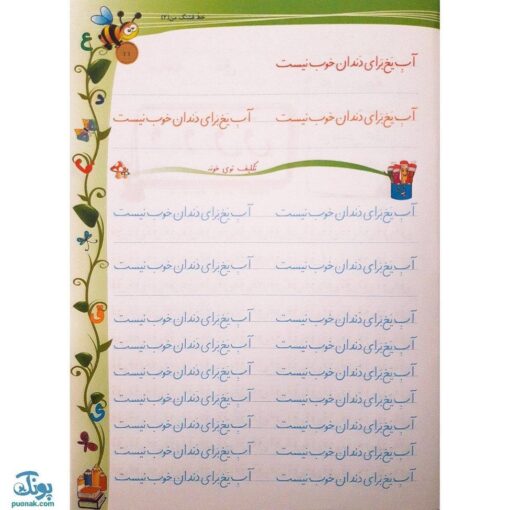 آب یخ برای دندان خوب نیست
آب یخ برای دندان خوب نیست آب یخ برای دندان خوب نیست
تکلیف توی خونه
آب یخ برای دندان خوب نیست آب یخ برای دندان خوب نیست
آب یخ برای دندان خوب نیست آب یخ برای دندان خوب نیست
آب یخ برای دندان خوب نیست آب یخ برای دندان خوب نیست
آب یخ برای دندان خوب نیست آب یخ برای دندان خوب نیست
آب یخ برای دندان خوب نیست آب یخ برای دندان خوب نیست
آب یخ برای دندان خوب نیست آب یخ برای دندان خوب نیست
آب یخ برای دندان خوب نیست آب یخ برای دندان خوب نیست
آب یخ برای دندان خوب نیست آب یخ برای دندان خوب نیست
آب یخ برای دندان خوب نیست آب یخ برای دندان خوب نیست
پونک
puonak.com